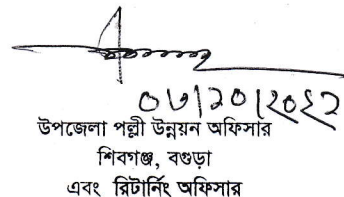 ০৬/১০/২০২২
উপজেলা পল্লী উন্নয়ন অফিসার
শিবগঞ্জ, বগুড়া
এবং রিটার্নিং অফিসার